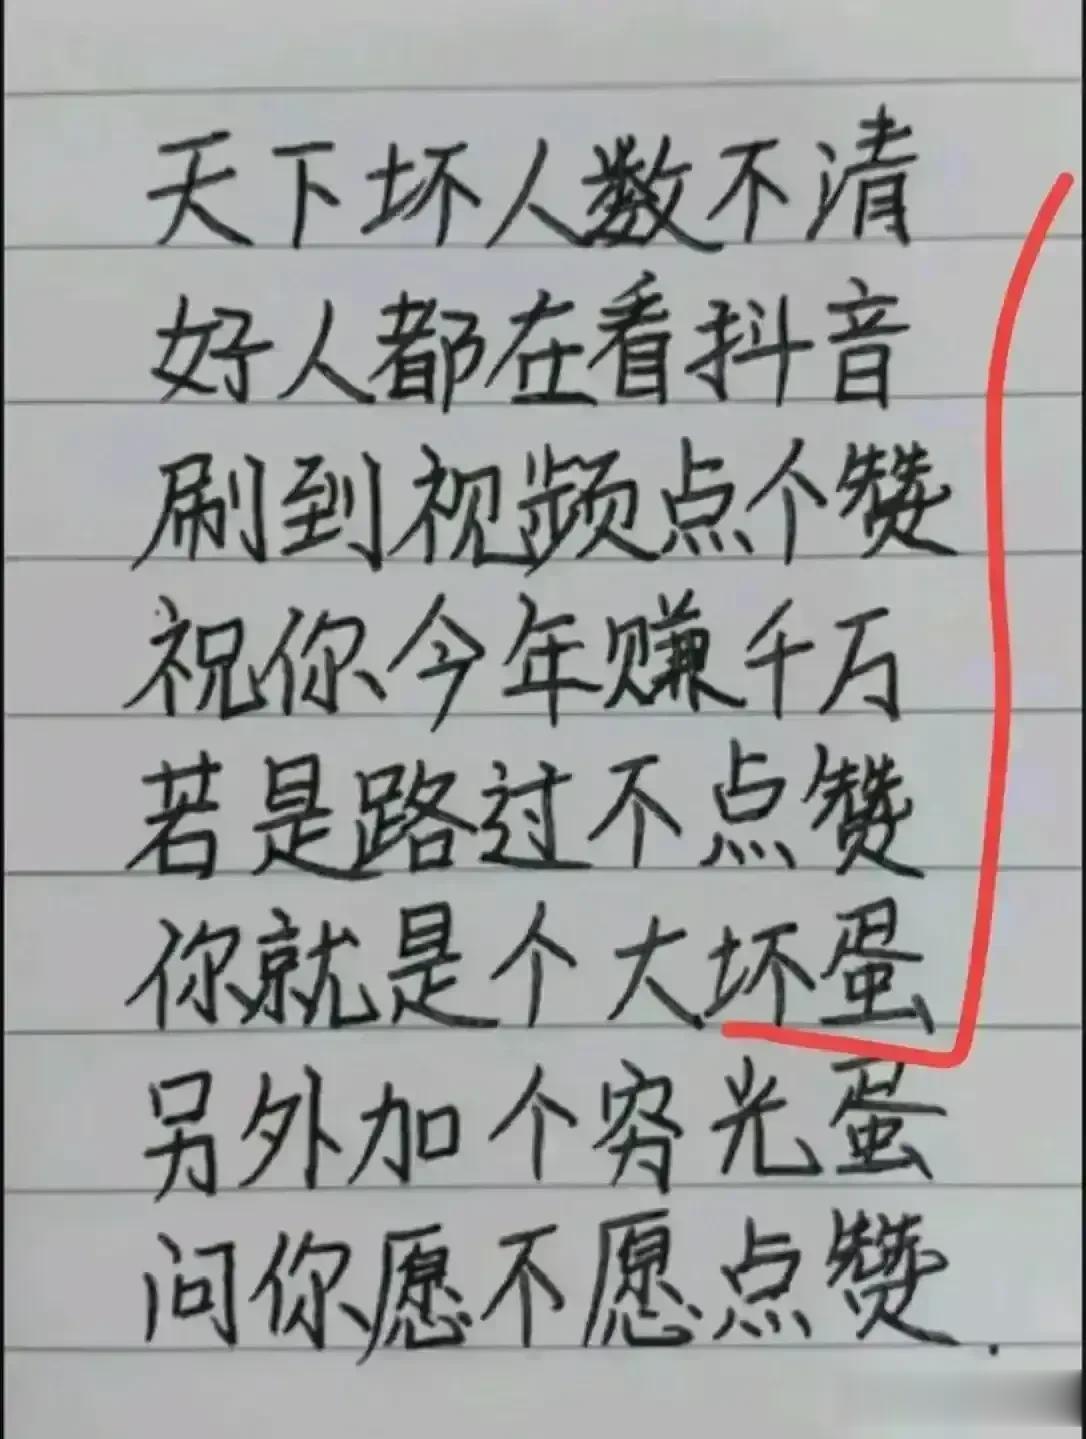 天下坏人数不清
好人都在看抖音
刷到视频点个赞
祝你今年赚千万
若是路过不点赞
你就是个大坏蛋
另外加个穷光蛋
问你愿不愿点赞.